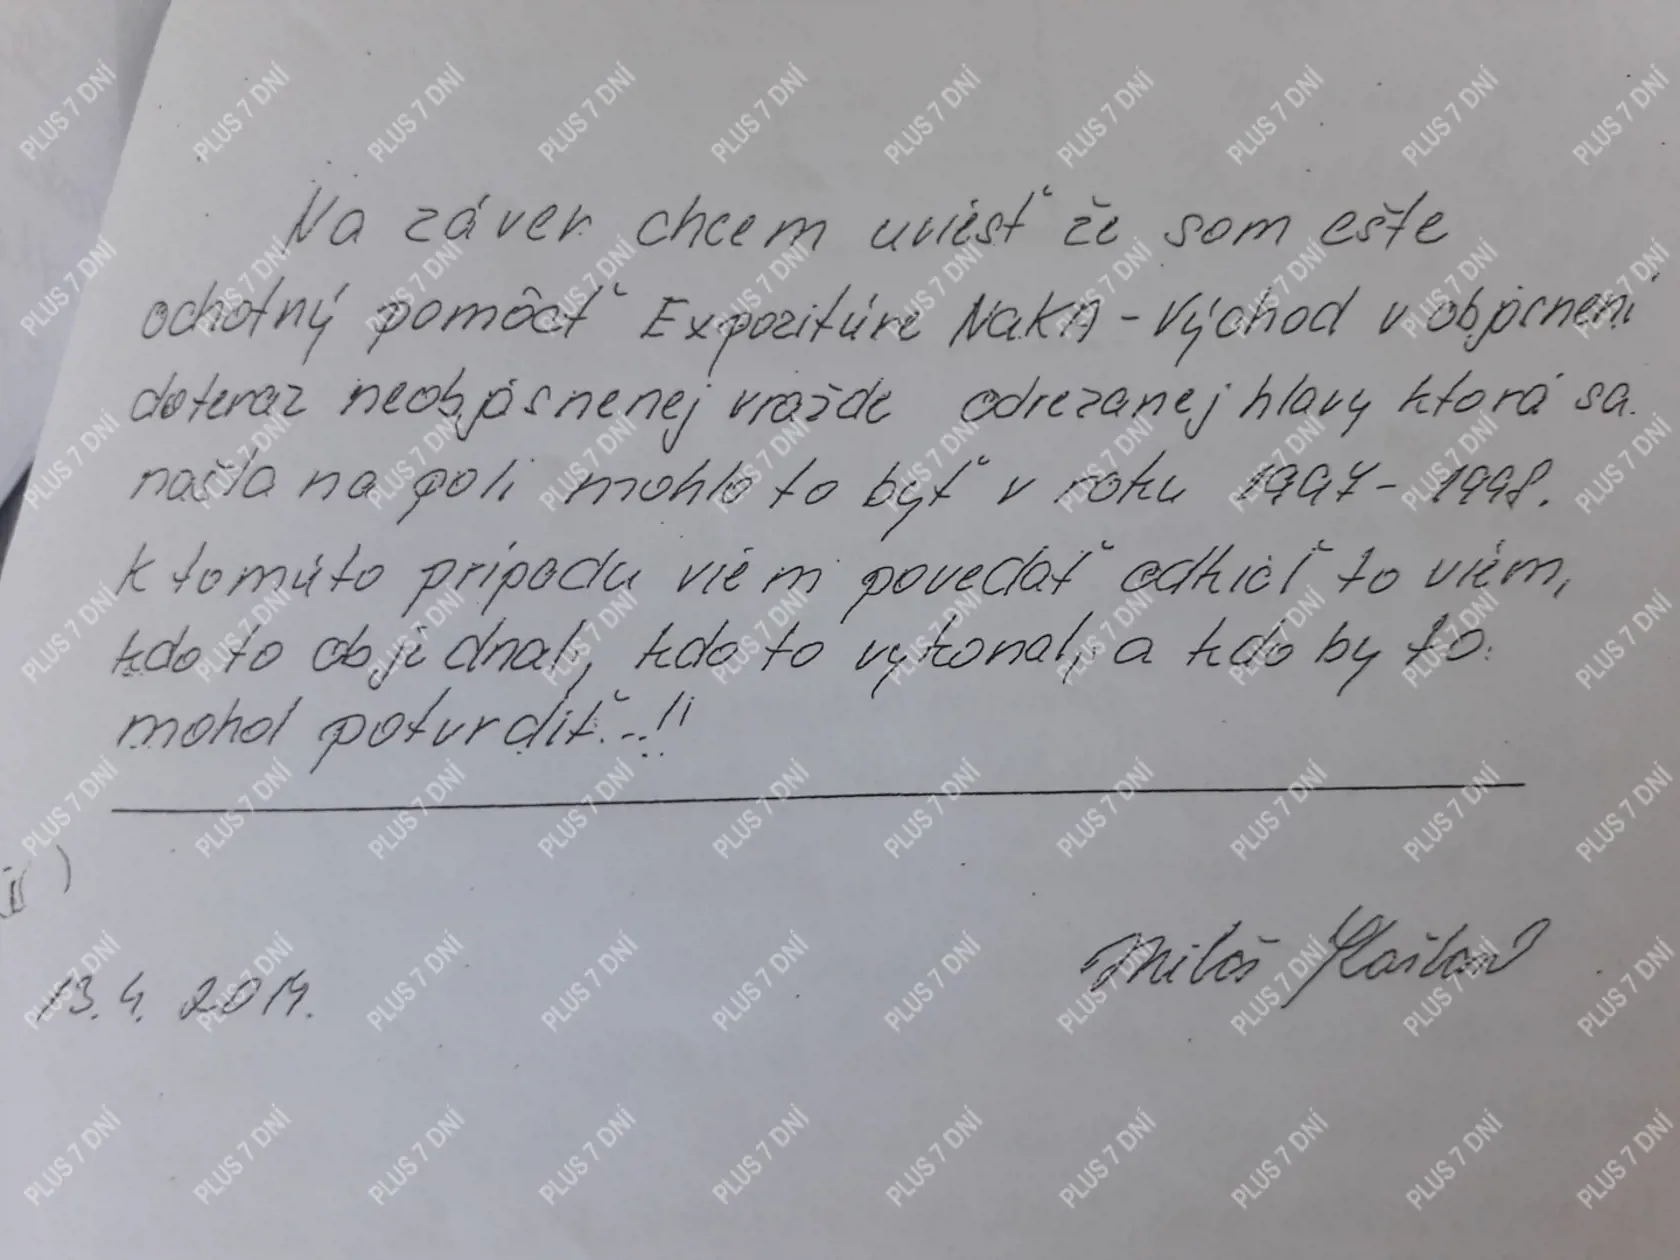 Na záver chcem uviésť že som ešte
ochotný pomôcť Expozitúre NaKA - Východ v objásneni
doteraz neobjásnenej vražde odrezanej hlavy ktorá sa
našla na poli mohlo to byť v roku 1997 - 1998.
K tomúto prípadu viém povedať odkiciaľ to viém,
kdo to objednal, kdo to vykonal, a kdo by to
mohol potvrdiť...!!
13.4. 2014.
Miloš
PLUS 7 DNÍ